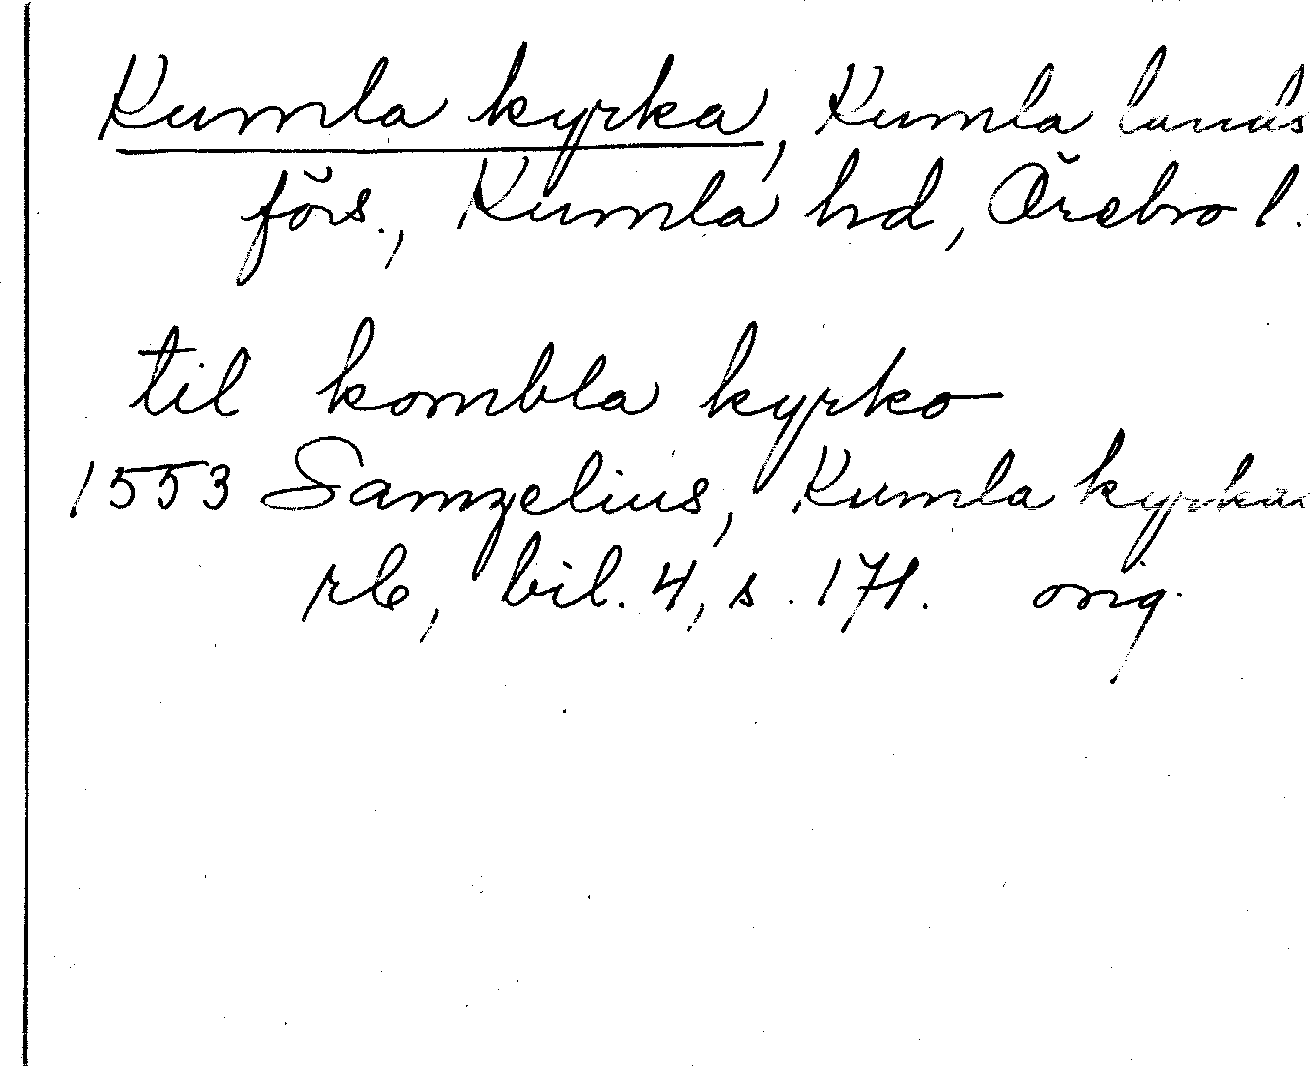 Kumla kyrka, Kumla lands
förs., Kumla hd, Örebro l.
til kombla kyrko
1553 Samzelius, Kumla kyrkas
rb, bil. 4, s. 171. orig.